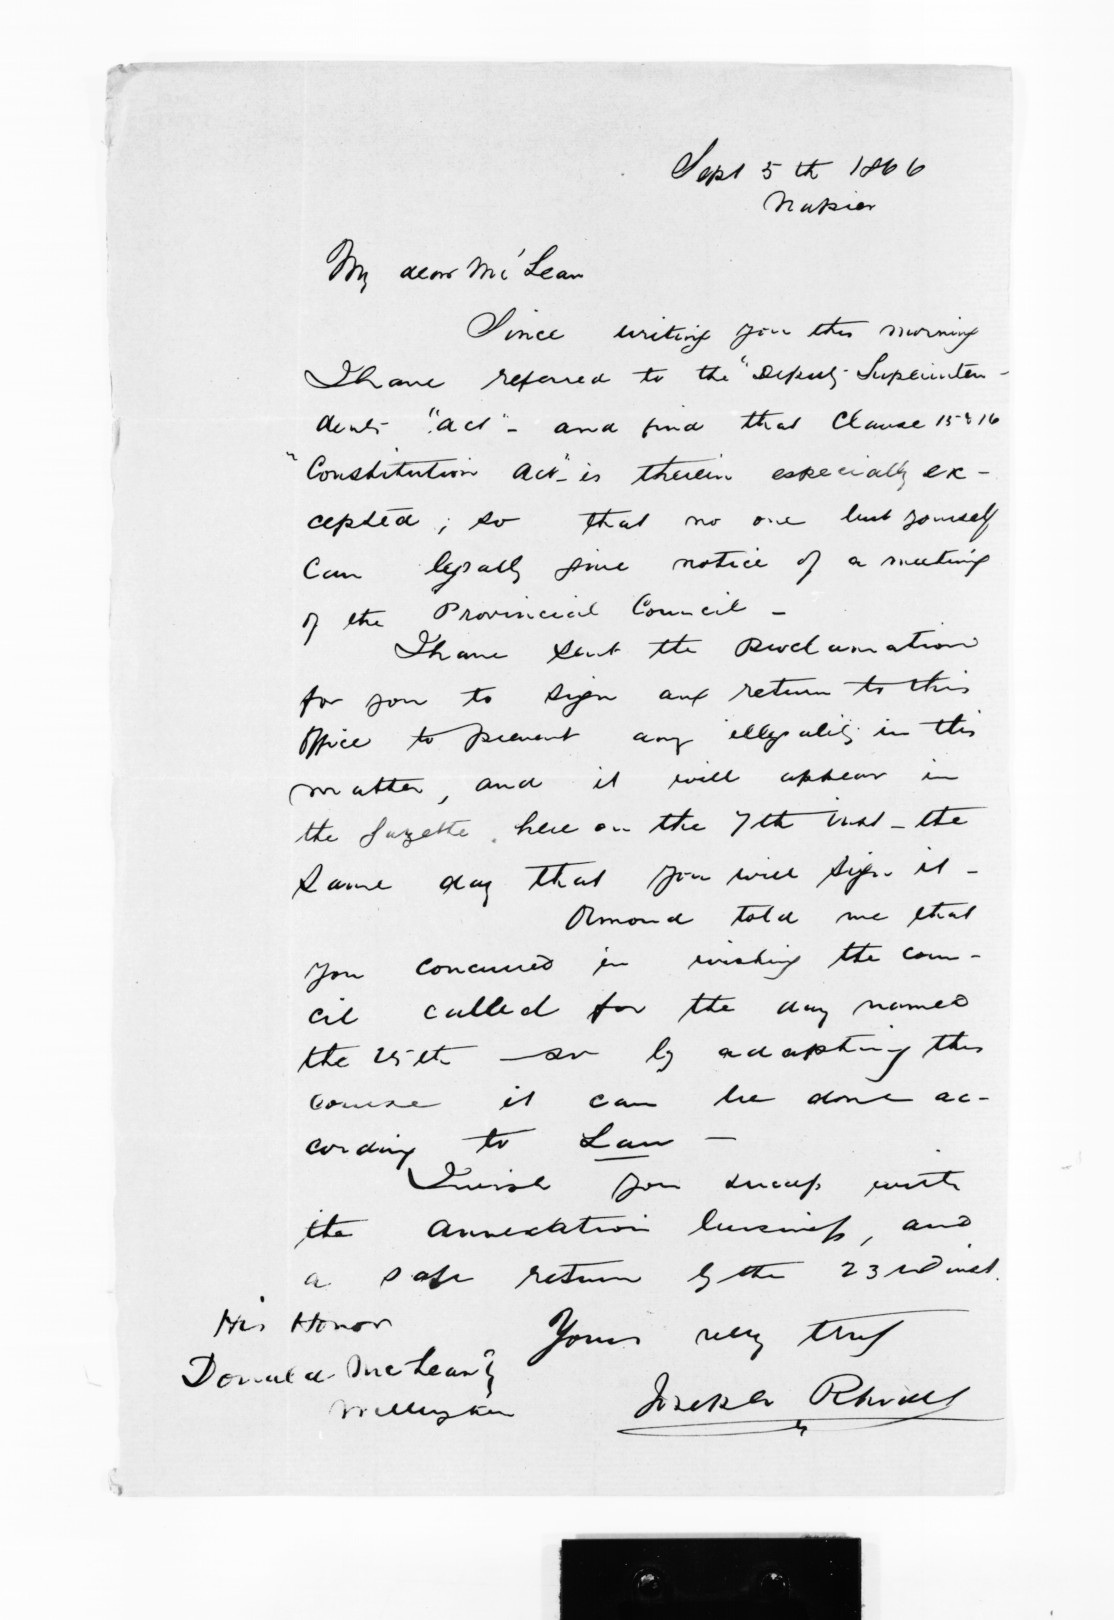 Sept 5th 1866
Napier
My dear McLean
Since writing you this morning
I have referred to the "Deputy Superinten-
dents "Act" - and find that Clause 15 & 16
"Constitution Act" - is therein especially ex-
cepted, so that no one but yourself
can legally give notice of a meeting
of the Provincial Council -
I have sent the Proclamation
for you to sign and return to this
Office to prevent any illegality in this
matter, and it will appear in
the Gazette here on the 7th inst - the
same day that you will sign it -
Ormond told me that
you concurred in wishing the coun-
cil called for the day named
the 25th - so by adapting this
course it can be done ac-
cording to Law -
I wish you success with
the annexation business, and
a safe return by the 23rd inst.
Yours very truly
Joseph Rhodes
His Honor
Donald McLean Esq
Wellington